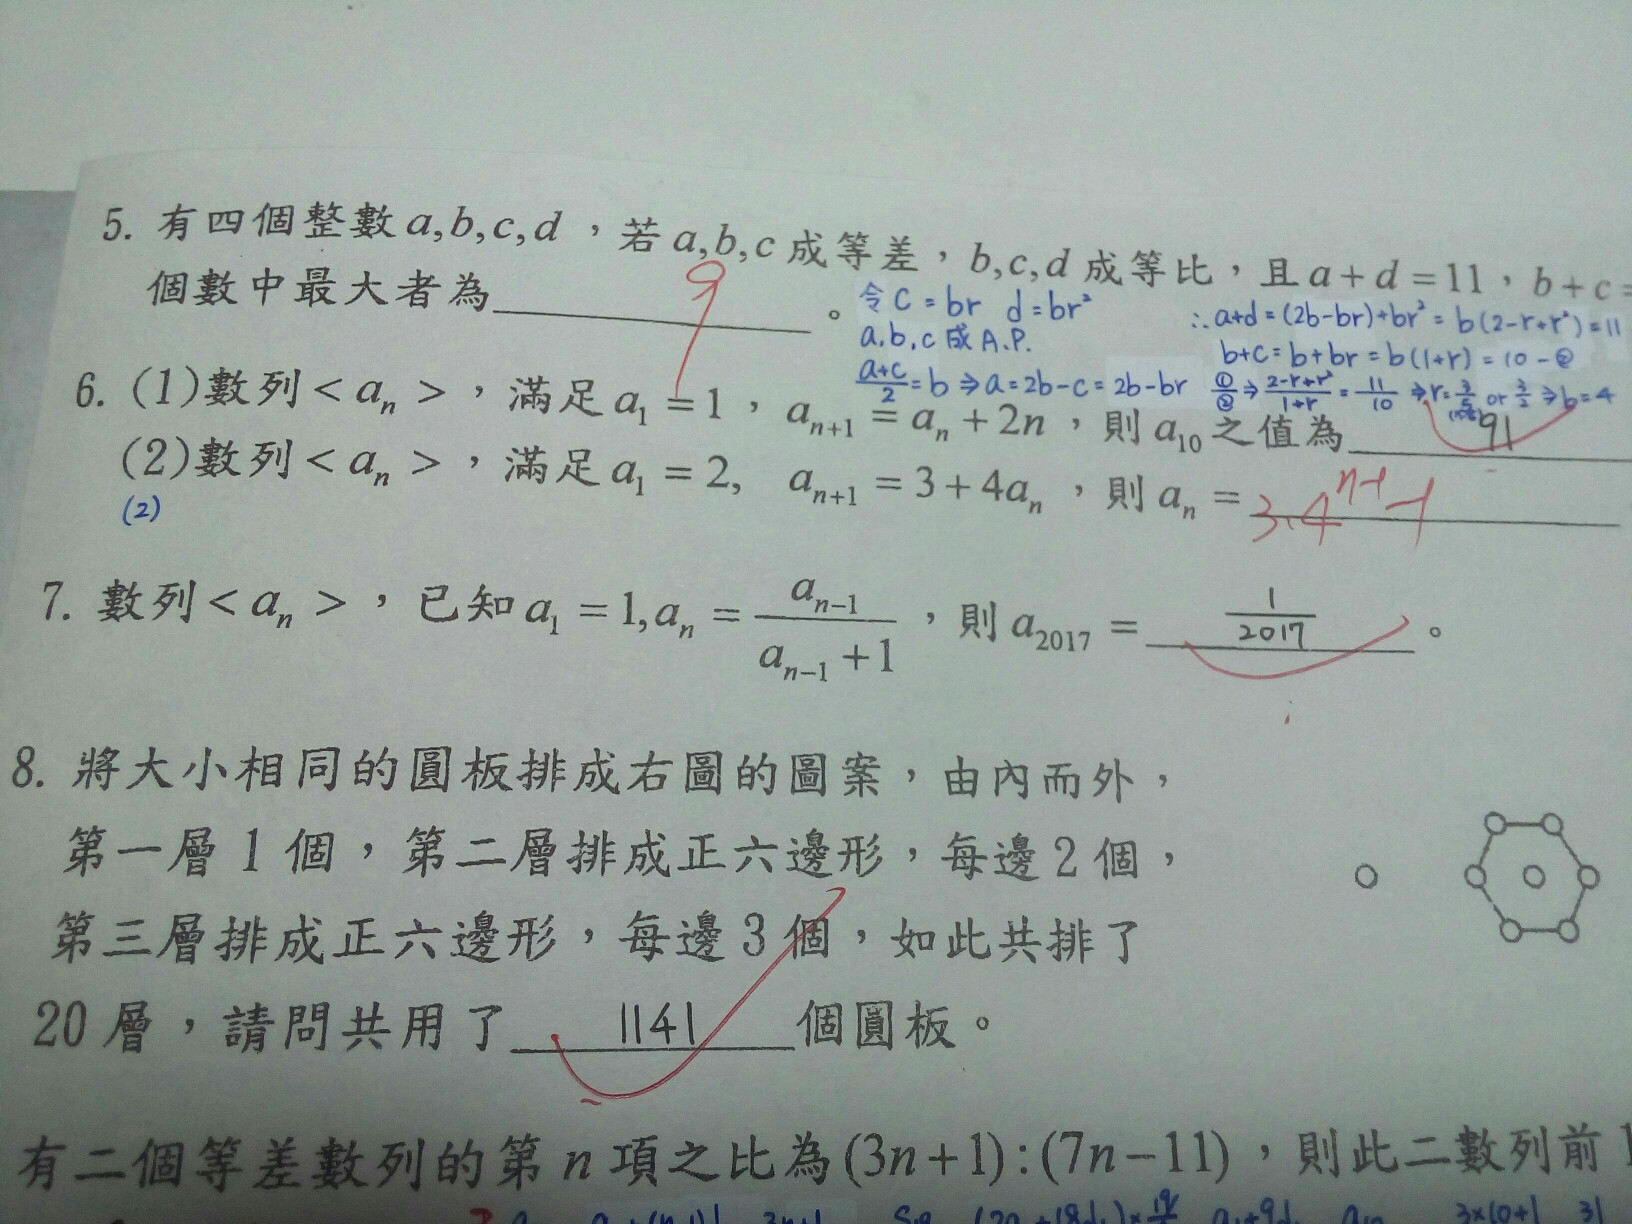 5. 有四個整數 a,b,c,d ，若 a,b,c 成等差，b,c,d 成等比，且 a + d = 11，b + c =
個數中最大者為 9 。
令 c = br d = br²
a.b.c 成 A.P.
(a+c)/2 = b ⇒ a = 2b-c = 2b-br
∴ a+d = (2b-br)+br² = b(2-r+r²) = 11
b+c = b+br = b(1+r) = 10 -②
①/② ⇒ (2-r+r²)/(1+r) = 11/10 ⇒ r = 3/5 or 3/2 ⇒ b = 4
6. (1)數列 < aₙ > ，滿足 a₁ = 1，aₙ₊₁ = aₙ + 2n ，則 a₁₀ 之值為 91
(2)數列 < aₙ > ，滿足 a₁ = 2, aₙ₊₁ = 3 + 4aₙ ，則 aₙ = 3.4ⁿ⁻¹ -1
(2)
7. 數列 < aₙ > ，已知 a₁ = 1, aₙ = aₙ₋₁/(aₙ₋₁ + 1) ，則 a₂₀₁₇ = 1/2017 。
8. 將大小相同的圓板排成右圖的圖案，由內而外，
第一層 1 個，第二層排成正六邊形，每邊 2 個，
第三層排成正六邊形，每邊 3 個，如此共排了
20 層，請問共用了 1141 個圓板。
有二個等差數列的第 n 項之比為 (3n+1):(7n-11) ，則此二數列前